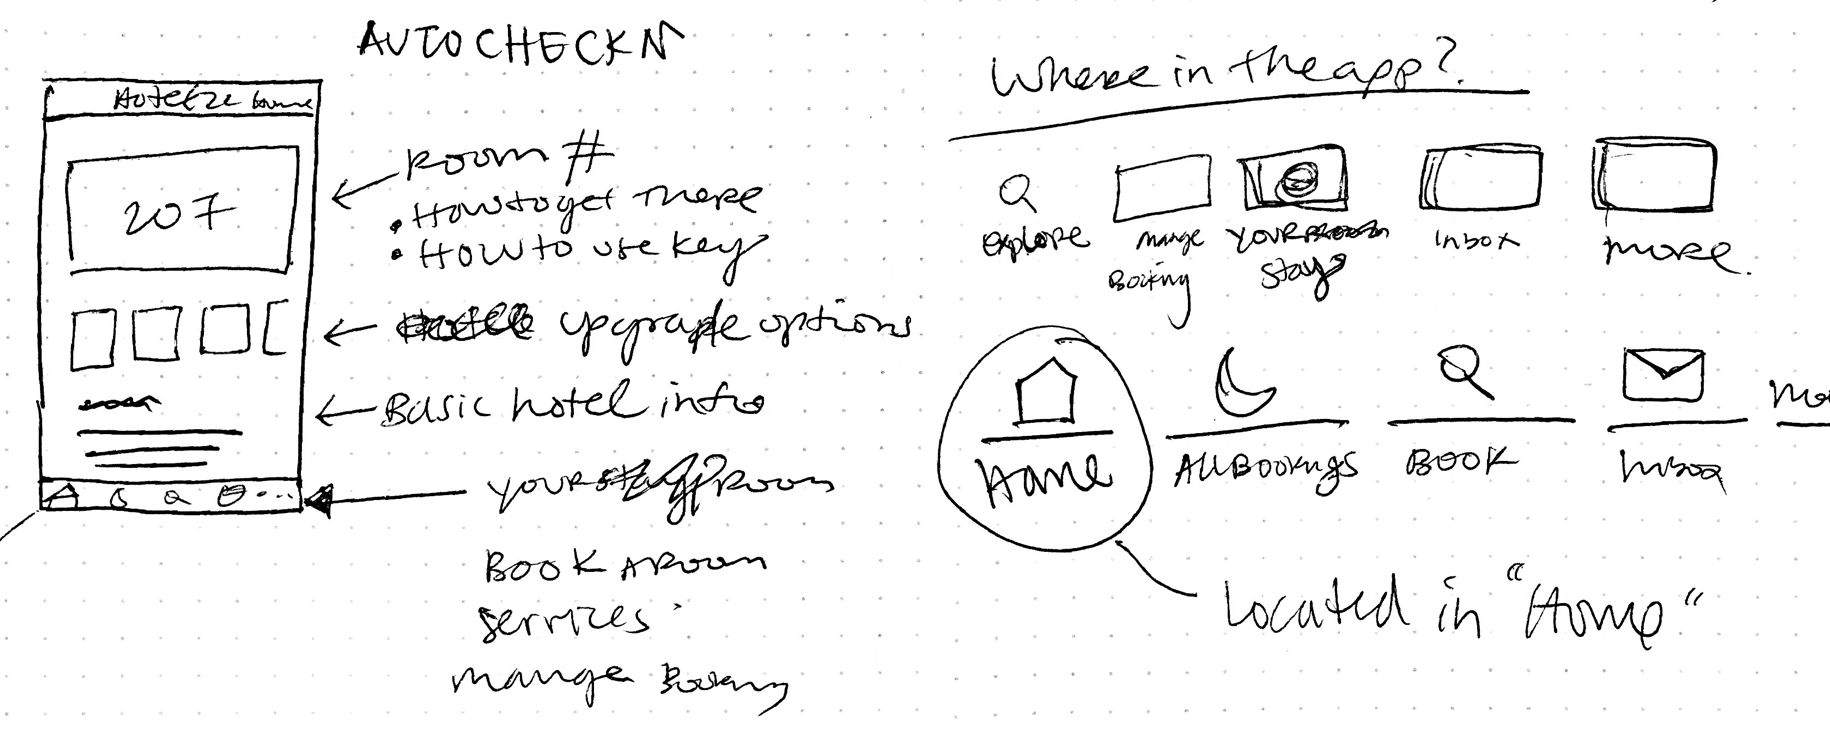 AUTOCHECKN
207
Room #
• How to get There
• How to use key
upgrade options
Basic hotel info
your room
Book A Room
services
mange Booking
Where in the app?
explore
mange
Booking
your
stay
Inbox
more.
Home
All Bookings
BOOK
Inbox
Located in “Home”